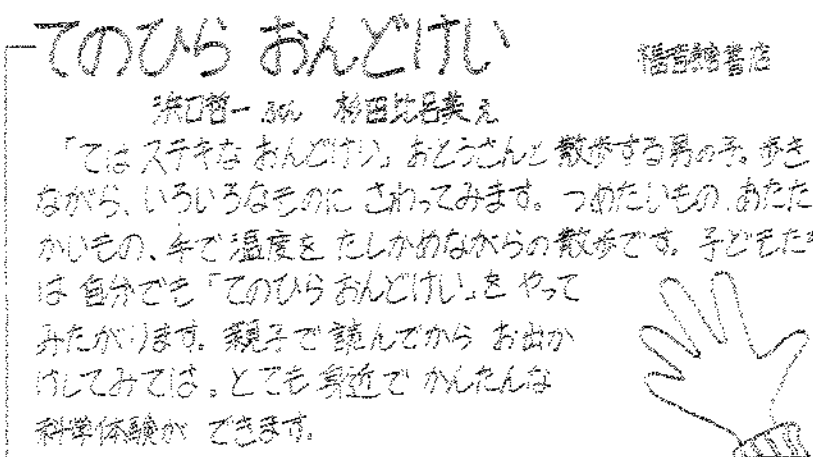 てのひら おんどけい 福音館書店
浜口哲一 ぶん 杉田比呂美 え
「ては ステキな おんどけい」 おとうさんと 散歩する男の子。歩き
ながら、いろいろなものに さわってみます。 つめたいもの、あたた
かいもの、手で 温度を たしかめながらの散歩です。 子どもた
は 自分でも「てのひら おんどけい」を やって
みたがります。 親子で 読んでから お出か
けしてみては。とても 身近で かんたんな
科学体験が できます。